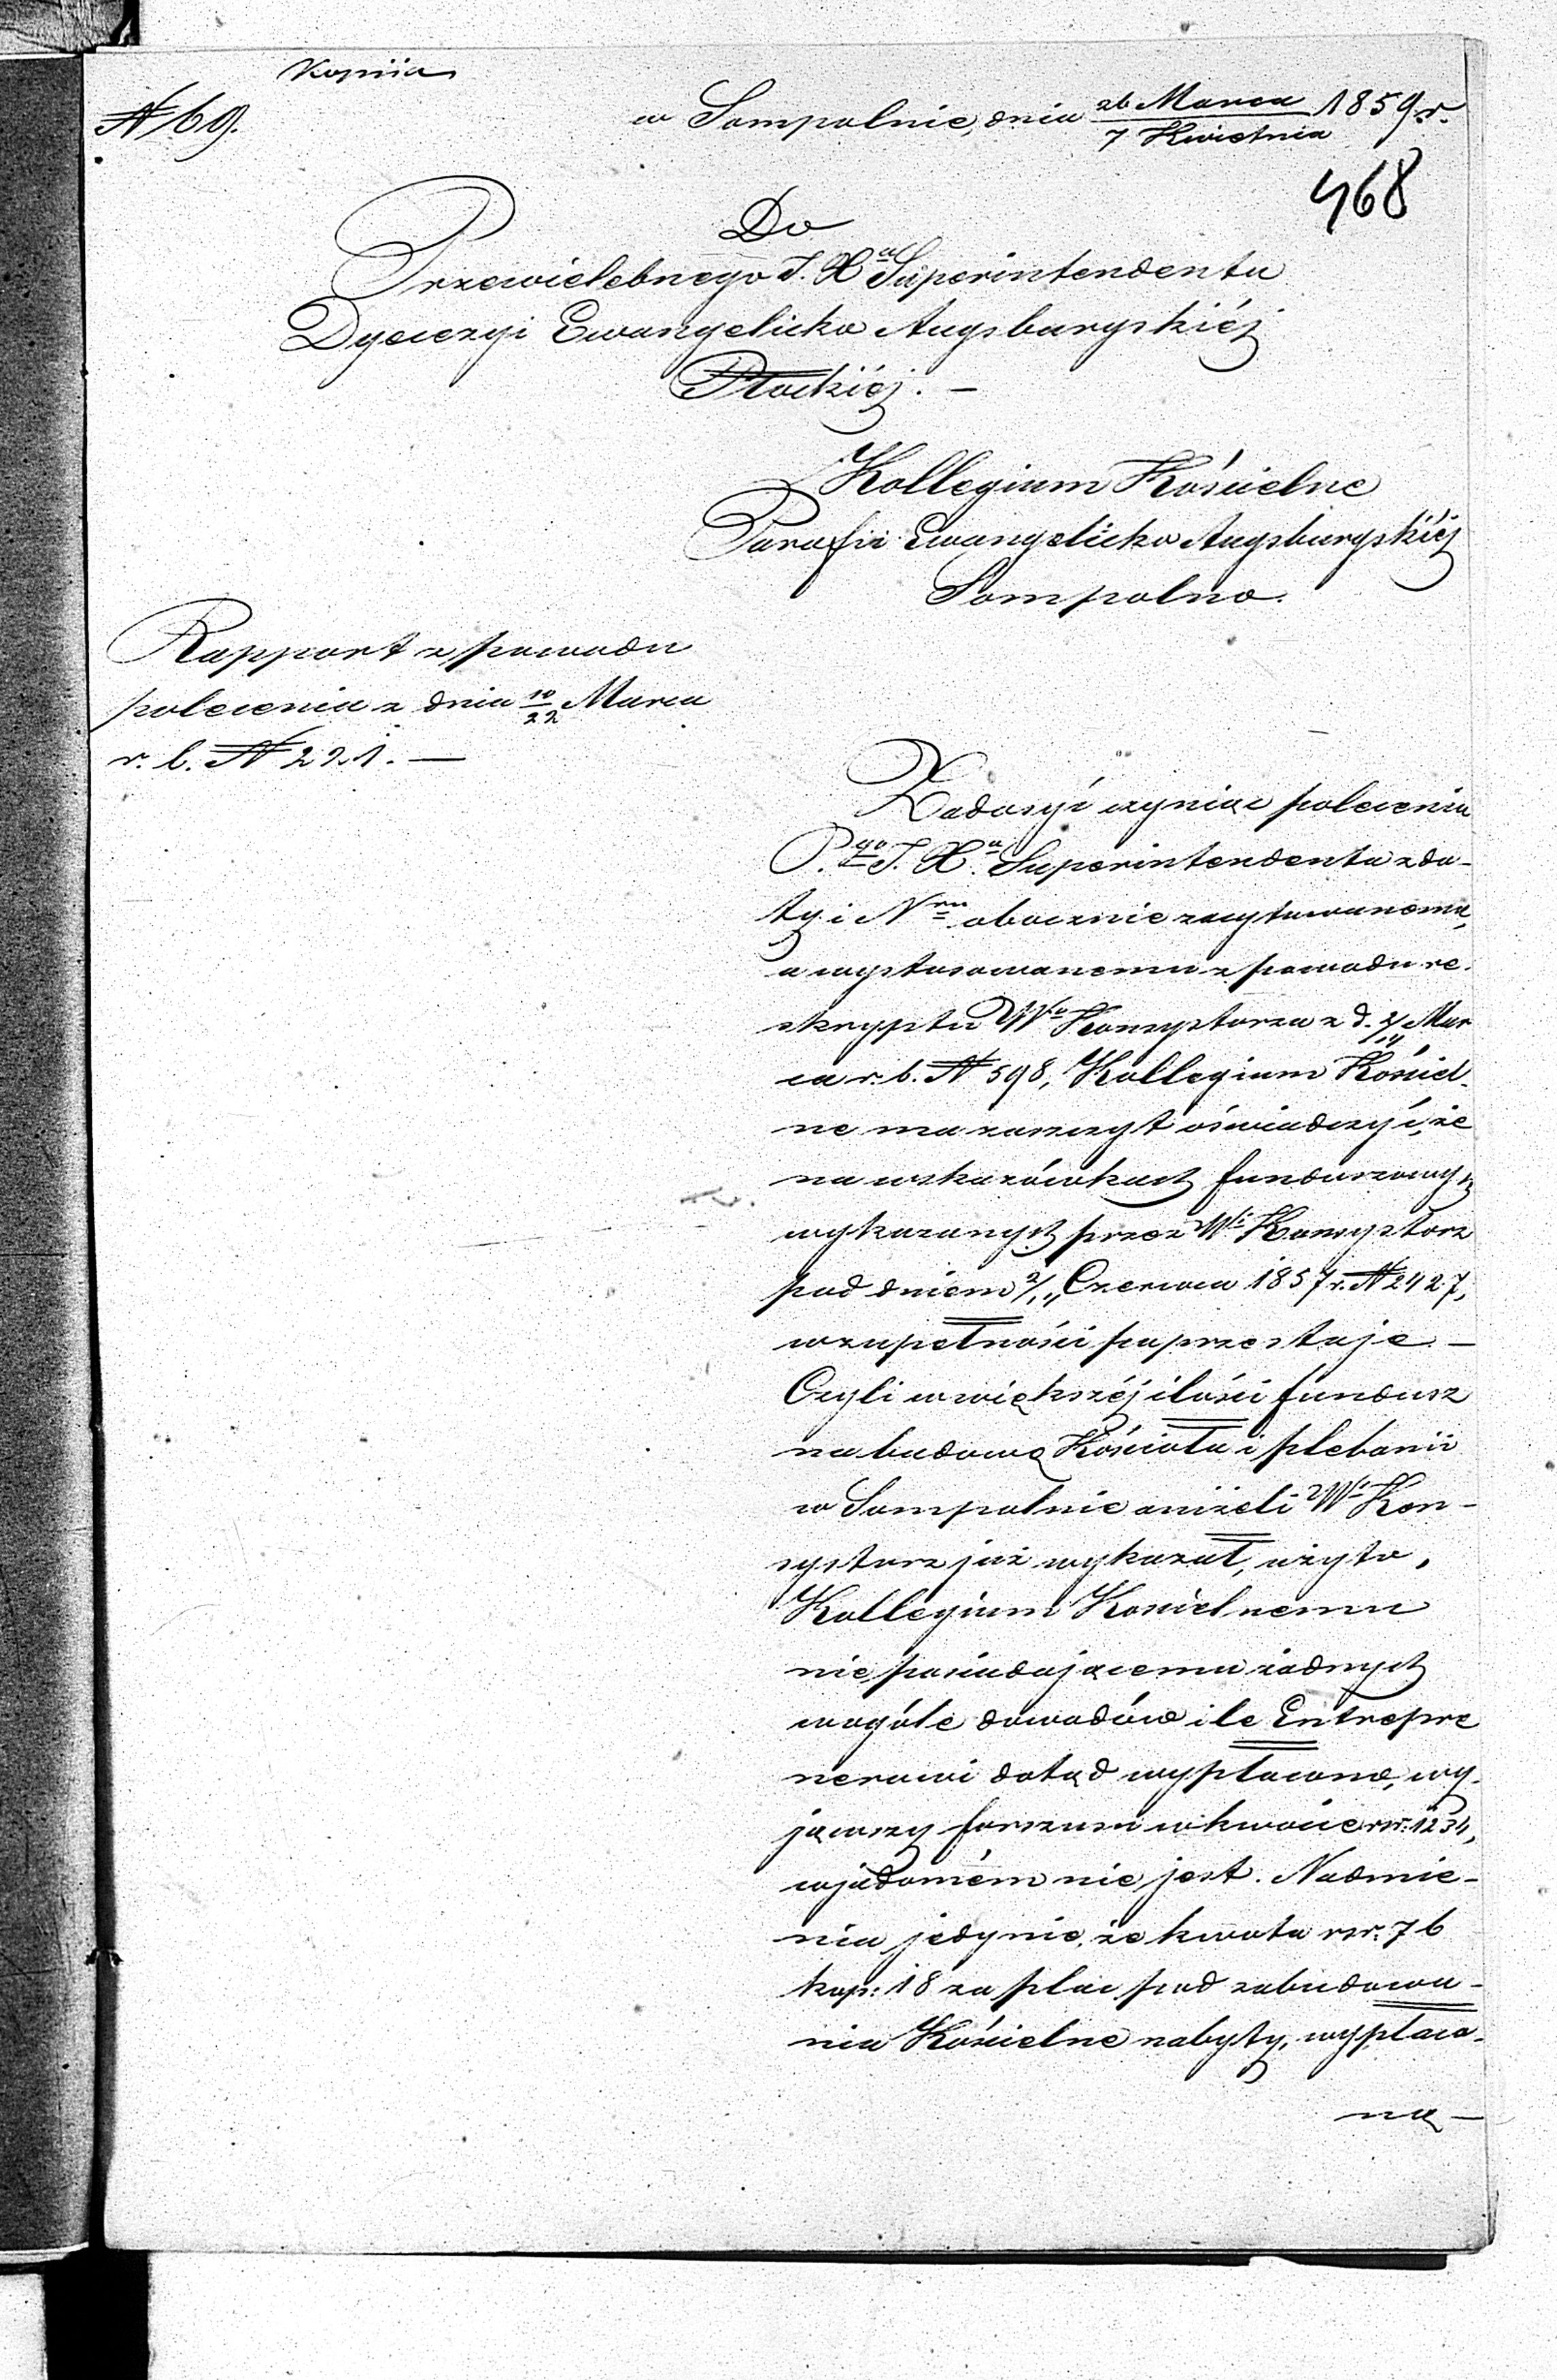 Kopiia
№ 69.
w Sompolnie, dnia 26 Marca / 7 Kwietnia 1859 r.
468
Do
Przewielebnego J. Xa Superintendenta
Dyecezyi Ewangelicko Augsburgskiéj
Płockiéj. —
Kollegium Kościelne
Parafii Ewangelicko Augsburgskiéj
Sompolno.
Rapport z powodu
polecenia z dnia 10/22 Marca
r. b. № 221. —
Zadosyć czyniąc poleceniu
P.go J. Xa Superintendenta z da-
ty i Nru obocznie zacytowanemu,
a wystosowanemu z powodu re-
skryptu Wo Konsystorza z d. 2/14 Mar
ca r. b. № 598, Kollegium Kościel-
ne ma zaszczyt oświadczyć, że
na wskazówkach funduszowych
wykazanych przez Wi Konsystorz
pod dniem 2/14 Czerwca 1857 r. № 2427,
w zupełności poprzestaje. —
Czyli w większéj ilości fundusz
na budowę Kościoła i plebanii
w Sompolnie aniżeli Wi Kon-
systorz już wykazał, użyto,
Kollegium Koscielnemu
nie posiadającemu żadnych
wogóle dowodów ile Entrepre
nerowi dotąd wypłacono, wy-
jąwszy forszusu w kwocie rsr. 1234,
wjadomém nie jest. Nadmie-
nia jedynie, że kwota rsr. 76
kop: 18 za plac pod zabudowa-
nia Kościelne nabyty, wypłaco-
ną —